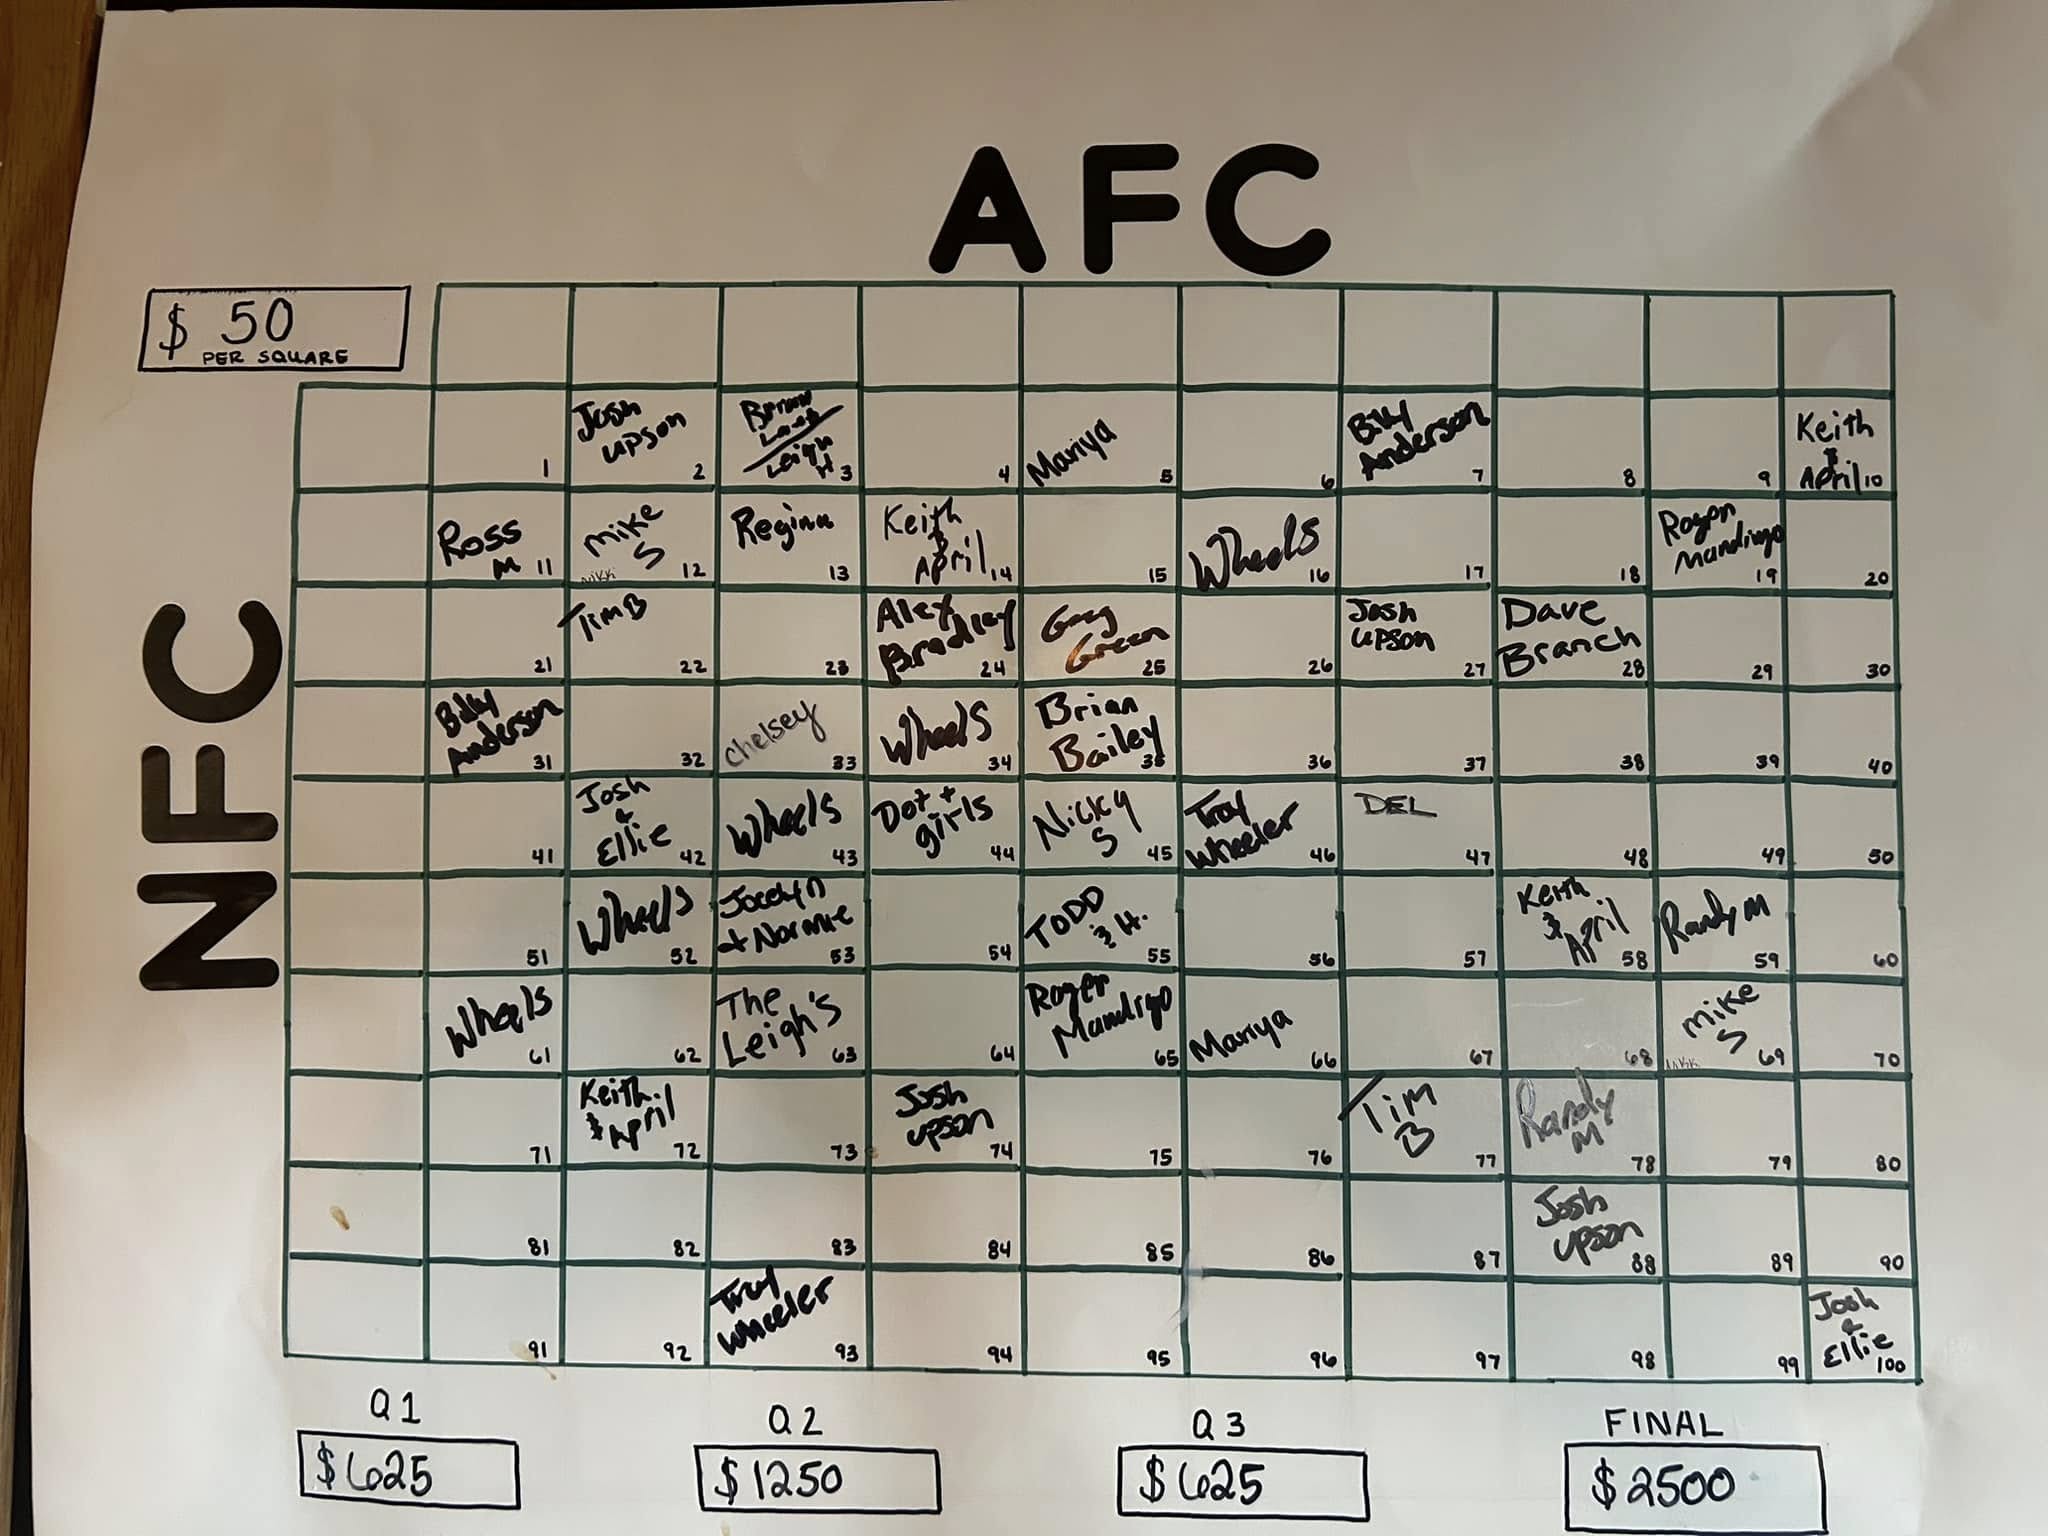 AFC
$ 50
PER SQUARE
NFC
1
Josh
Upson
2
Leigh
H 3
4
Mariya
5
6
Billy
Anderson
7
8
9
Keith
&
April 10
Ross
M 11
Mike
S
Nikki
12
Regina
13
Keith
&
April 14
15
Wheels
16
17
18
Mandigo
19
20
21
Tim B
22
23
Alex
Bradley
24
Greg
Green
25
26
Josh
Upson
27
Dave
Branch
28
29
30
Billy
Anderson
31
32
Chelsey
33
Wheels
34
Brian
Bailey
35
36
37
38
39
40
41
Josh
&
Ellie 42
Wheels
43
Dot +
girls
44
Nicky
S 45
Troy
Wheeler
46
DEL
47
48
49
50
51
Wheels
52
Jocelyn
+ Normie
53
54
TODD
& H.
55
56
57
Keith
&
April
58
Randy M
59
60
Wheels
61
62
The
Leigh's
63
64
Roger
Mandigo
65
Mariya
66
67
68
Mike
S
Nikki
69
70
71
Keith
& April
72
73
Josh
Upson
74
75
76
Tim
B
77
Randy
M
78
79
80
81
82
83
84
85
86
87
Josh
Upson
88
89
90
91
92
Troy
Wheeler
93
94
95
96
97
98
99
Josh
&
Ellie
100
Q1
Q2
Q3
FINAL
$625
$1250
$625
$2500